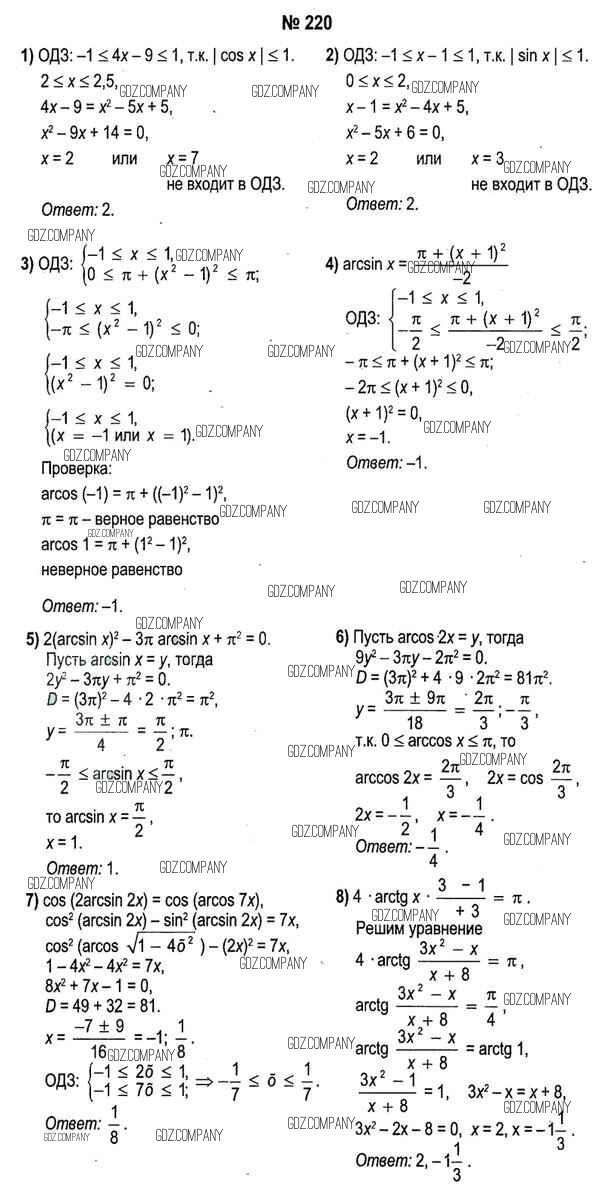 № 220
1) ОДЗ: –1 ≤ 4x – 9 ≤ 1, т.к. | cos x | ≤ 1.
2 ≤ x ≤ 2,5,
4x – 9 = x² – 5x + 5,
x² – 9x + 14 = 0,
x = 2 или x = 7
не входит в ОДЗ.
Ответ: 2.
2) ОДЗ: –1 ≤ x – 1 ≤ 1, т.к. | sin x | ≤ 1.
0 ≤ x ≤ 2,
x – 1 = x² – 4x + 5,
x² – 5x + 6 = 0,
x = 2 или x = 3
не входит в ОДЗ.
Ответ: 2.
3) ОДЗ: {–1 ≤ x ≤ 1,
{0 ≤ π + (x² – 1)² ≤ π;
{–1 ≤ x ≤ 1,
{–π ≤ (x² – 1)² ≤ 0;
{–1 ≤ x ≤ 1,
{(x² – 1)² = 0;
{–1 ≤ x ≤ 1,
{(x = –1 или x = 1).
Проверка:
arcos (–1) = π + ((–1)² – 1)²,
π = π – верное равенство
arcos 1 = π + (1² – 1)²,
неверное равенство
Ответ: –1.
4) arcsin x = (π + (x + 1)²)/(–2)
ОДЗ: {–1 ≤ x ≤ 1,
{–π/2 ≤ (π + (x + 1)²)/(–2) ≤ π/2;
– π ≤ π + (x + 1)² ≤ π;
– 2π ≤ (x + 1)² ≤ 0,
(x + 1)² = 0,
x = –1.
Ответ: –1.
5) 2(arcsin x)² – 3π arcsin x + π² = 0.
Пусть arcsin x = y, тогда
2y² – 3πy + π² = 0.
D = (3π)² – 4 · 2 · π² = π²,
y = (3π ± π)/4 = π/2; π.
–π/2 ≤ arcsin x ≤ π/2,
то arcsin x = π/2,
x = 1.
Ответ: 1.
6) Пусть arcos 2x = y, тогда
9y² – 3πy – 2π² = 0.
D = (3π)² + 4 · 9 · 2π² = 81π².
y = (3π ± 9π)/18 = 2π/3; –π/3,
т.к. 0 ≤ arccos x ≤ π, то
arccos 2x = 2π/3, 2x = cos 2π/3,
2x = –1/2, x = –1/4.
Ответ: –1/4.
7) cos (2arcsin 2x) = cos (arcos 7x),
cos² (arcsin 2x) – sin² (arcsin 2x) = 7x,
cos² (arcos √(1 – 4õ²)) – (2x)² = 7x,
1 – 4x² – 4x² = 7x,
8x² + 7x – 1 = 0,
D = 49 + 32 = 81.
x = (–7 ± 9)/16 = –1; 1/8.
ОДЗ: {–1 ≤ 2õ ≤ 1,
{–1 ≤ 7õ ≤ 1; ⇒ –1/7 ≤ õ ≤ 1/7.
Ответ: 1/8.
8) 4 · arctg x · (3 – 1)/(+ 3) = π.
Решим уравнение
4 · arctg (3x² – x)/(x + 8) = π,
arctg (3x² – x)/(x + 8) = π/4,
arctg (3x² – x)/(x + 8) = arctg 1,
(3x² – 1)/(x + 8) = 1, 3x² – x = x + 8,
3x² – 2x – 8 = 0, x = 2, x = –1 1/3.
Ответ: 2, –1 1/3.
GDZ.COMPANY